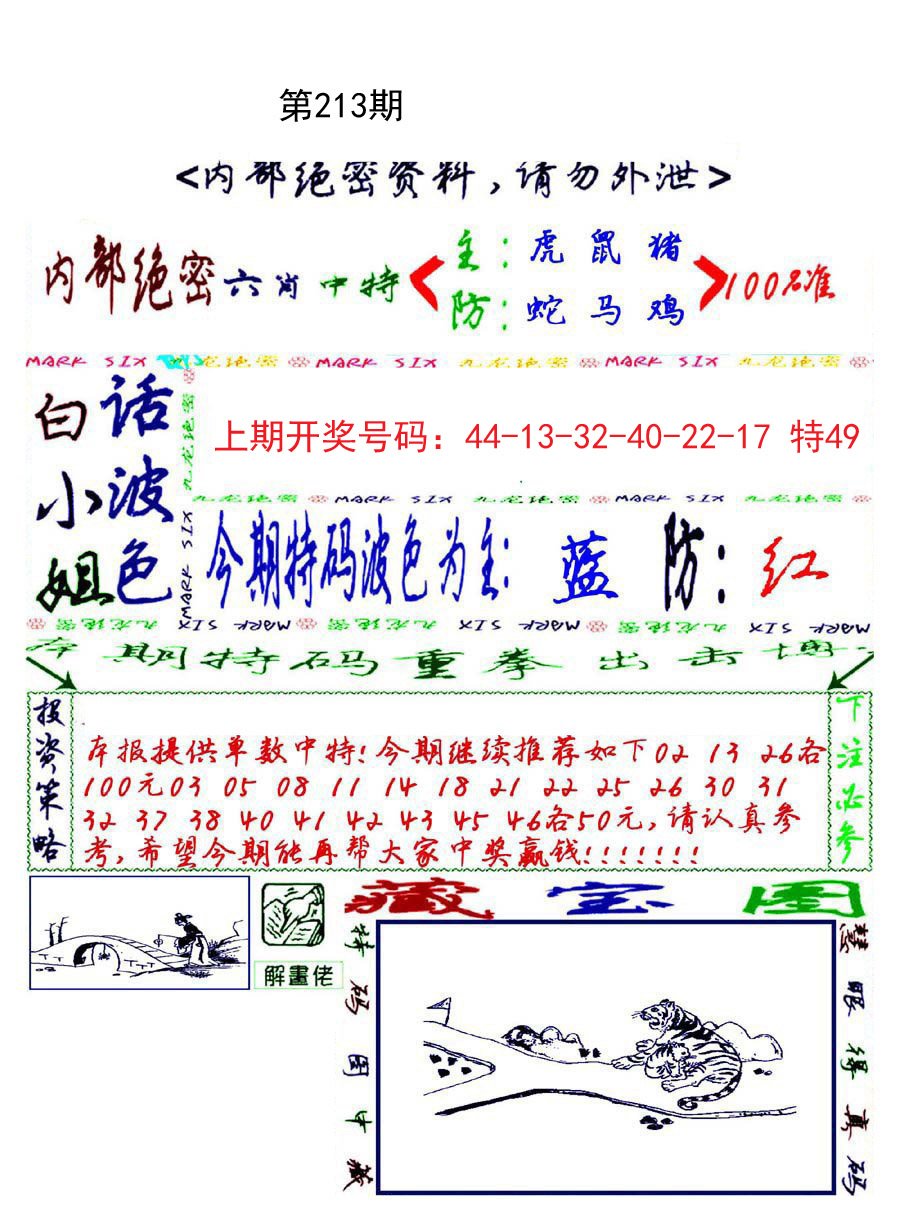 第213期
<内部绝密资料,请勿外泄>
内部绝密六肖中特
主:虎鼠猪
防:蛇马鸡
100%准
MARK SIX 九龙绝密 MARK SIX 九龙绝密 MARK SIX 九龙绝密
白话
小波
姐色
九龙绝密
MARK SIX
上期开奖号码：44-13-32-40-22-17 特49
九龙绝密 MARK SIX 九龙绝密 MARK SIX 九龙绝密
今期特码波色为主: 蓝 防: 红
九龙绝密 MARK SIX 九龙绝密 MARK SIX 九龙绝密 MARK SIX
本期特码重拳出击博
投资策略
本报提供单数中特!今期继续推荐如下02 13 26各
100元03 05 08 11 14 18 21 22 25 26 30 31
32 37 38 40 41 42 43 45 46各50元,请认真参
考,希望今期能再帮大家中奖赢钱!!!!!!!
下注必参
解畫佬
藏宝图
特码图中藏
慧眼得真码